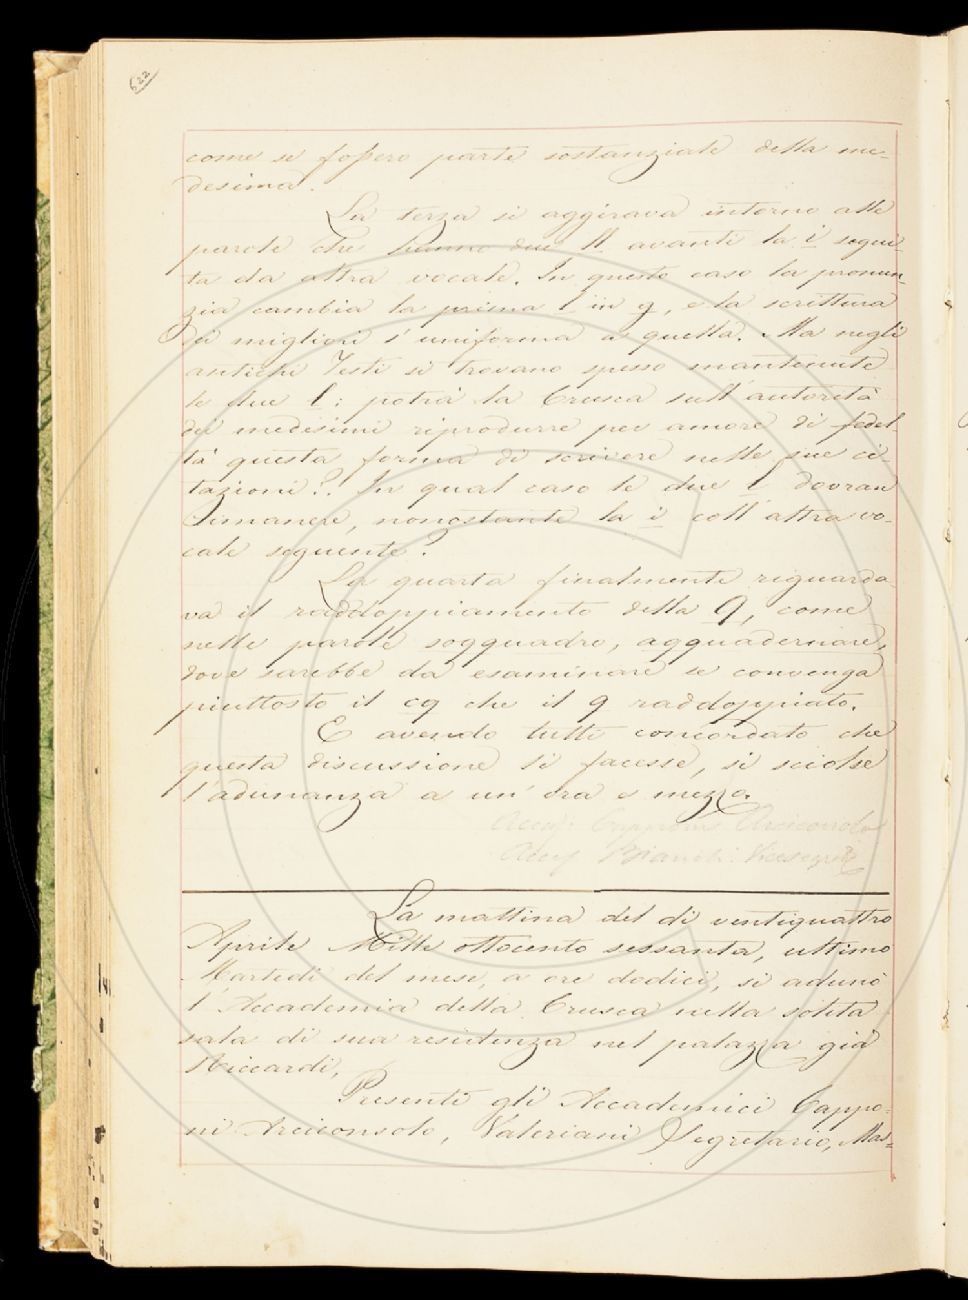 622
come se fossero parte sostanziale della me-
desima.
La terza si aggirava intorno alle
parole che hanno due ll avanti la i segui-
ta da altra vocale. In questo caso la pronun-
zia cambia la prima l in g, e la scrittura
dei migliori s'uniforma a quella. Ma negli
antichi Testi si trovano spesso mantenute
le due l: potrà la Crusca sull'autorità
dei medesimi riprodurre per amore di fedel
tà questa forma di scrivere nelle sue ci-
tazioni? In qual caso le due l dovran
rimanere, nonostante la i coll'altra vo-
cale seguente?
La quarta finalmente riguarda-
va il raddoppiamento della q, come
nelle parole soqquadro, aqquadernare,
dove sarebbe da esaminare se convenga
piuttosto il cq che il q raddoppiato.
E avendo tutti concordato che
questa discussione si facesse, si sciolse
l'adunanza a un'ora e mezzo.
Accad. Capponi Arciconsolo
Accad. Bianchi Vicesegr.
La mattina del dì ventiquattro
Aprile Mille ottocento sessanta, ultimo
Martedì del mese, a ore dodici, si adunò
l'Accademia della Crusca nella solita
sala di sua residenza nel palazzo già
Riccardi,
Presenti gli Accademici Cappo-
ni Arciconsolo, Valeriani Segretario, Mas-